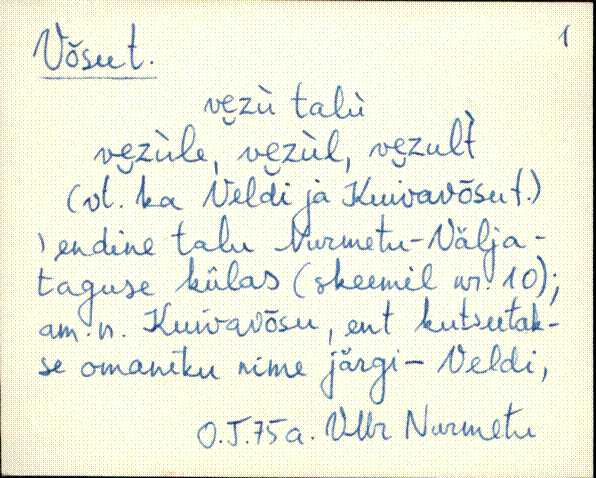 Võsut.
1
ve̮zù talù
ve̮zùle, ve̮zùl, ve̮zult̀
(vt. ka Veldi ja Kuivavõsut.)
endine talu Nurmetu-Välja-
taguse külas (skeemil nr. 10);
am. n. Kuivavõsu, ent kutsutak-
se omaniku nime järgi - Veldi,
O.J. 75a. VMr Nurmetu